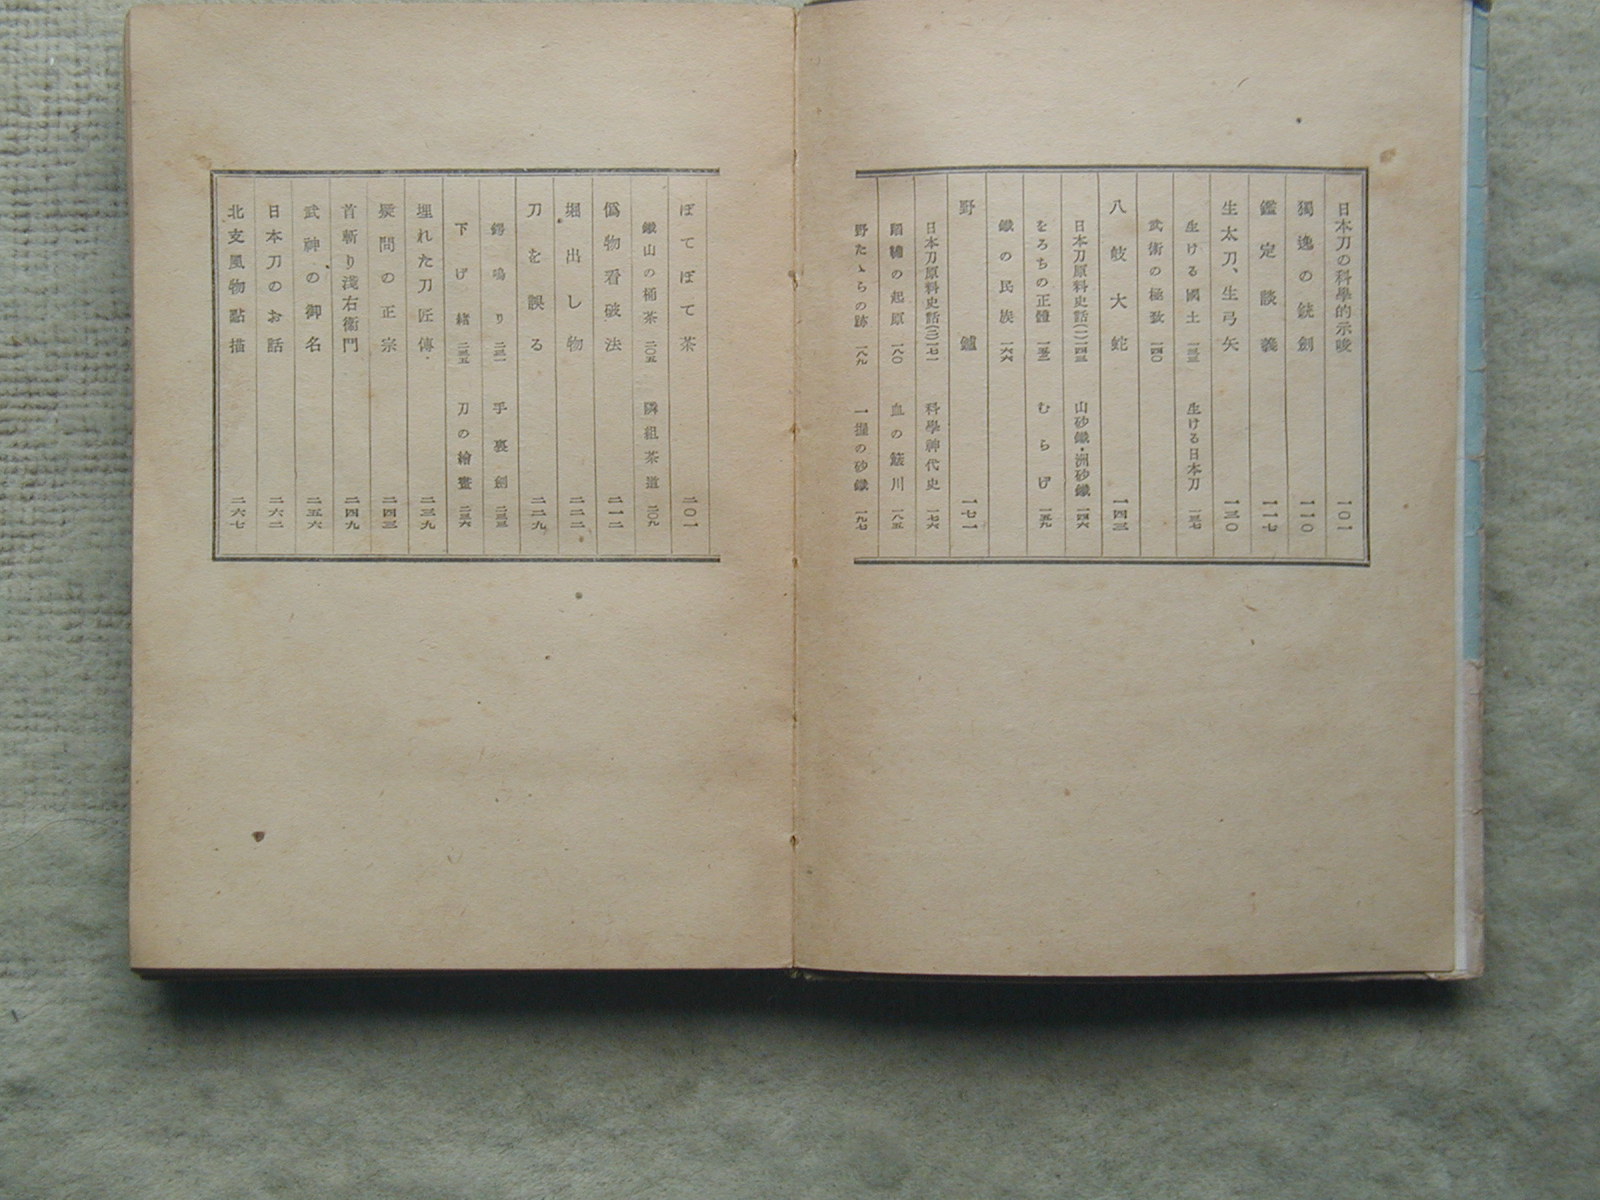 日本刀の科學的示唆 一〇一
獨逸の銃劍 一一〇
鑑定談義 一一七
生太刀、生弓矢 一三〇
生ける國土 一三三 生ける日本刀 一三七
武術の極致 一四〇
八岐大蛇 一四三
日本刀原料史話(一) 一四三 山砂鐵・洲砂鐵 一四六
をろちの正體 一五二 むらげ 一五九
鐵の民族 一六六
野鑪 一七一
日本刀原料史話(二) 一七一 科學神代史 一七六
蹈鞴の起原 一八〇 血の簸川 一八五
野たゝらの跡 一八九 一握の砂鐵 一九七
ぼてぼて茶 二〇一
鐵山の桶茶 二〇五 隣組茶道 二〇九
僞物看破法 二一二
堀出し物 二二二
刀を誤る 二二九
鍔鳴り 二三一 手裏劍 二三三
下げ緒 二三五 刀の繪畫 二三六
埋れた刀匠傳 二三九
疑問の正宗 二四三
首斬り淺右衞門 二四九
武神の御名 二五六
日本刀のお話 二六二
北支風物點描 二六七